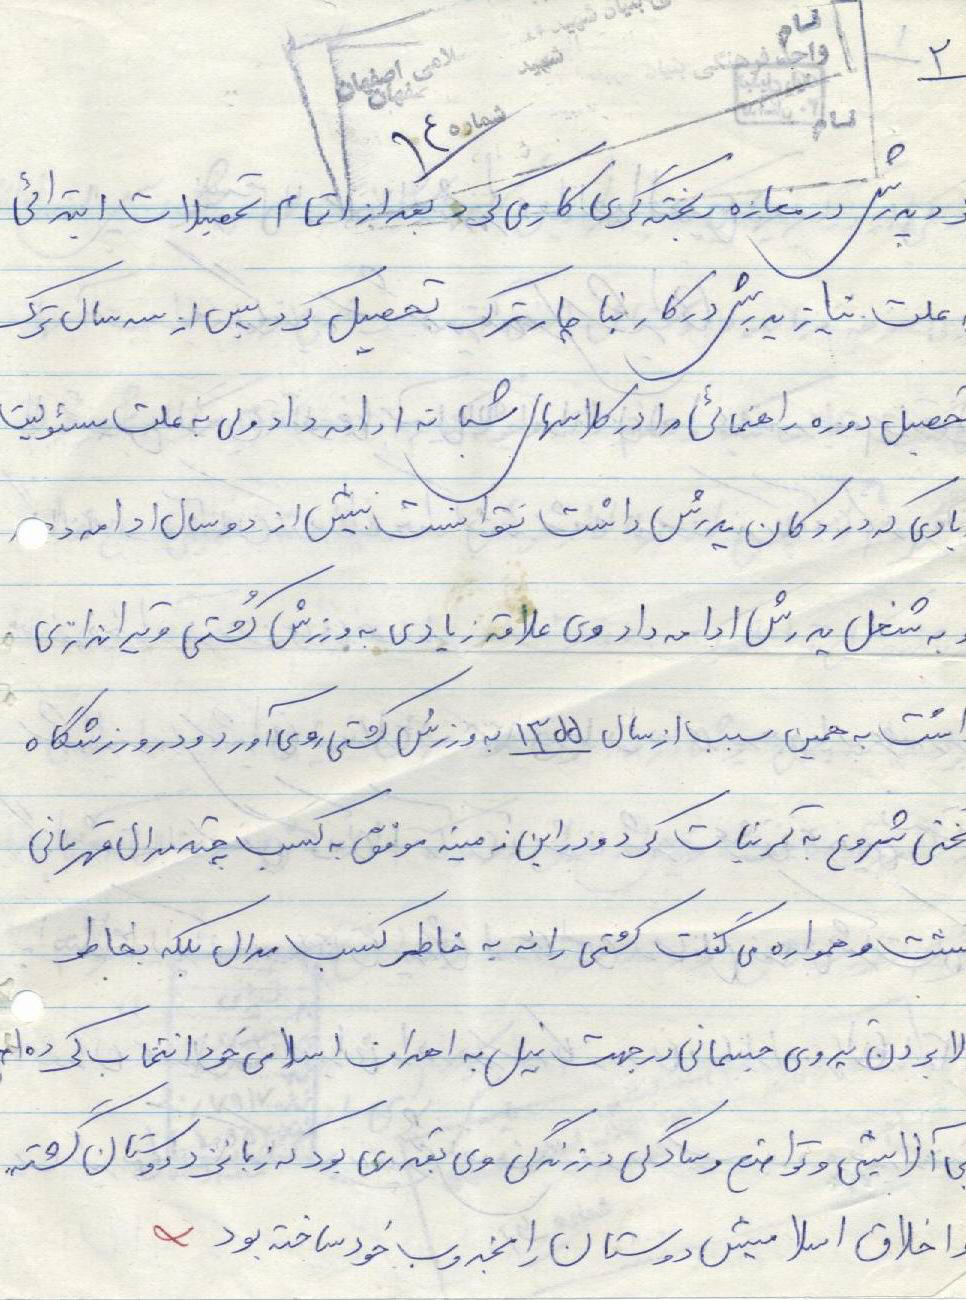 ۲
واحد فرهنگی بنیاد شهید
اسلامی اصفهان
شماره ۱٤
پدرش در مغازه ریخته گری کار می کرد بعد از اتمام تحصیلات ابتدائی
علت نیاز پدرش در کار بنا چار ترک تحصیل کرد پس از سه سال ترک
تحصیل دوره راهنمائی را در کلاسهای شبانه ادامه داد ولی به علت مسئولیت
زیادی که در دکان پدرش داشت نتوانست بیش از دو سال ادامه دهد
و به شغل پدرش ادامه داد وی علاقه زیادی به ورزش کُشتی و تیراندازی
داشت به همین سبب از سال ۱۳۵۵ به ورزش کشتی روی آورد و در ورزشگاه
تختی شروع به تمرینات کرد و در این زمینه موفق به کسب چند مدال قهرمانی
گشت و همواره می گفت کشتی را نه به خاطر کسب مدال بلکه بخاطر
بالا بردن نیروی جسمانی در جهت نیل به اهداف اسلامی خود انتخاب کرده ام
بی آلایشی و تواضع و سادگی در زندگی وی بقدری بود که زبانزد دوستان گشته
و اخلاق اسلامیش دوستان را مجذوب خود ساخته بود